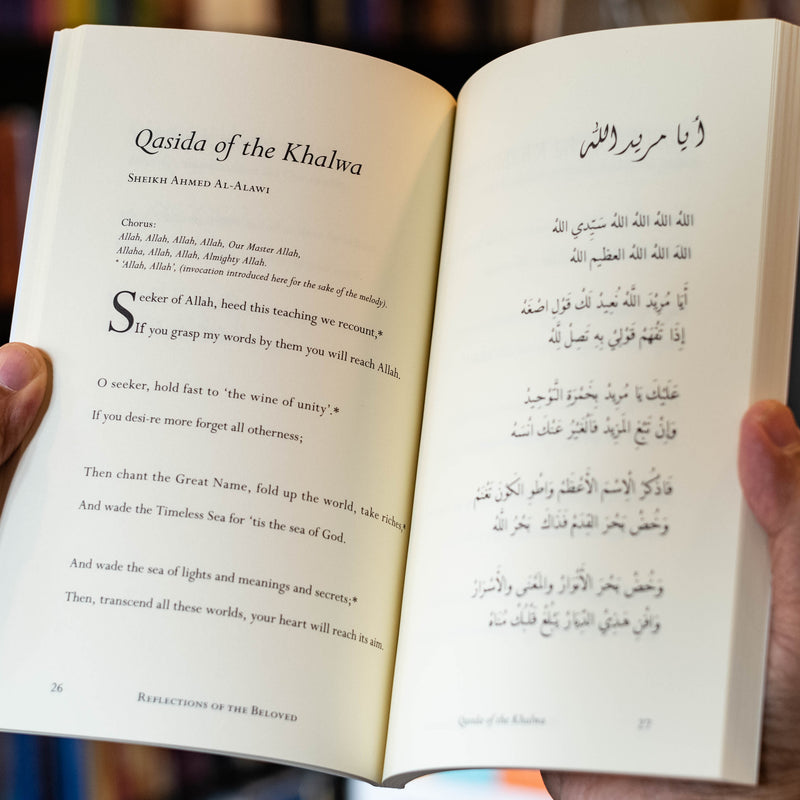 Qasida of the Khalwa
Sheikh Ahmed Al-Alawi
Chorus:
Allah, Allah, Allah, Allah, Our Master Allah,
Allaha, Allah, Allah, Almighty Allah.
* 'Allah, Allah', (invocation introduced here for the sake of the melody).
Seeker of Allah, heed this teaching we recount,*
If you grasp my words by them you will reach Allah.
O seeker, hold fast to 'the wine of unity'.*
If you desi-re more forget all otherness;
Then chant the Great Name, fold up the world, take riches,*
And wade the Timeless Sea for 'tis the sea of God.
And wade the sea of lights and meanings and secrets;*
Then, transcend all these worlds, your heart will reach its aim.
26
Reflections of the Beloved
أيا مريد الله
اللهُ اللهُ اللهُ اللهُ سَيِّدِي اللهُ
اللهَ اللهُ اللهُ العظيم اللهُ
أَيَا مُرِيْدَ اللَّهُ نُعِيدُ لَكْ قَوْلِ اصْغَهُ
إِذَا تَفْهَمْ قَوْلِيْ بِهِ تَصِلْ لِلَّه
عَلَيْكَ يَا مُرِيدُ بِخَمْرَةِ التَّوْحِيدُ
وَإِنْ تَبْغِ المَزِيدُ فَالْغَيْرُ عَنْكَ انْسَهُ
فَاذْكُرِ الْاِسْمَ الأَعْظَمْ وَاطْوِ الكَوْنَ تَغْنَمْ
وَخُضْ بَحْرَ القِدَمْ فَذَاكَ بَحْرُ اللَّهُ
وَخُضْ بَحْرَ الأَنْوَارْ وَالمَعْنَى وَالأَسْرَارْ
وَافْنِ هَذِي الدِّيَارْ يَبْلُغْ قَلْبُكْ مُنَاهُ
Qasida of the Khalwa
27